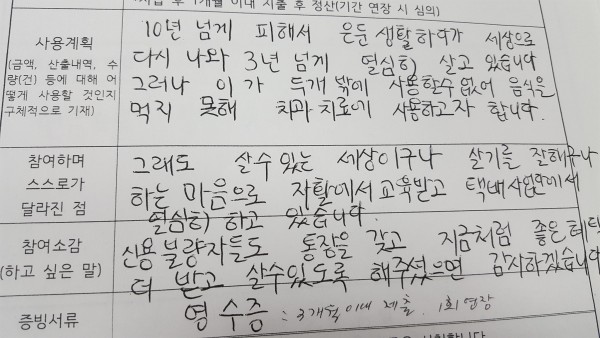 후 1개월 이내 지출 후 정산(기간 연장 시 심의)
사용계획
(금액, 산출내역, 수
량(건) 등에 대해 어
떻게 사용할 것인지
구체적으로 기재)
10년 넘게 피해서 은둔 생활하여가 세상으로
다시 나와 3년 넘게 열심히 살고 있습니다
그러나 이가 두개 밖에 사용할수 없어 음식은
먹지 못해 치과 치료에 사용하고자 합니다.
참여하며
스스로가
달라진 점
그래도 살수 있는 세상이구나 살기를 잘했구나
하는 마음으로 자활에서 교육받고 택배사업단에서
열심히 하고 있습니다.
참여소감
(하고 싶은 말)
신용불량자들도 통장을 갖고 지금처럼 좋은 혜택
더 받고 살수있도록 해주셨으면 감사하겠습니다
증빙서류
영수증 : 3개월이내 제출. 1회 연장